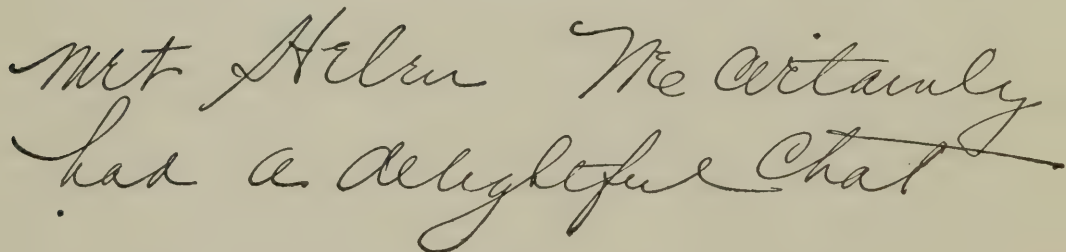 met Helen We certainly
had a delightful chat